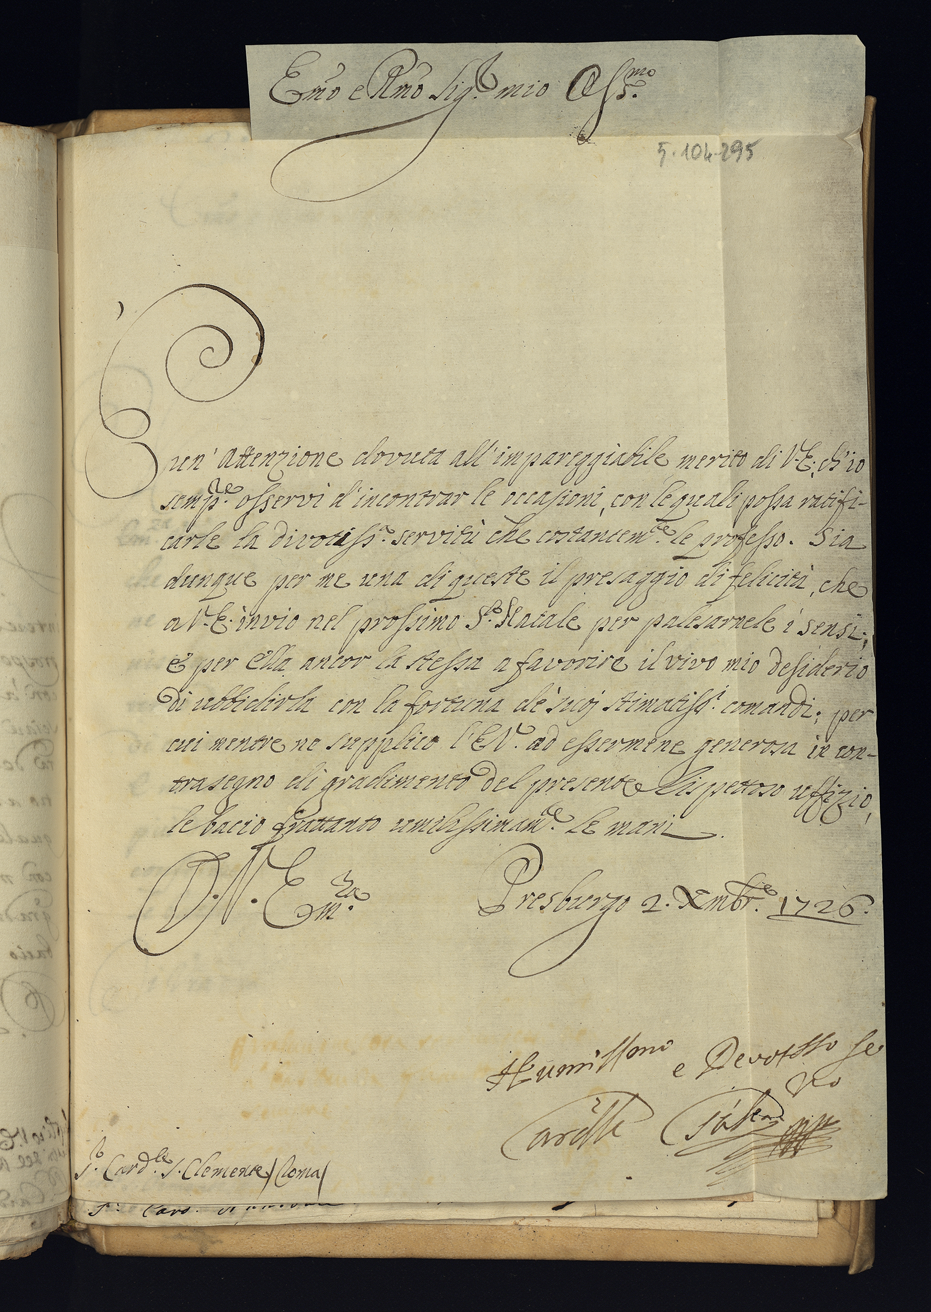 Emo e Rmo Sigr. mio Ossmo.
5.104-295
È un' Attenzione dovuta all' impareggiabile merito di V.E. ch'io
sempre. osservi d'incontrar le occasioni, con le quali possa ratifi-
carle la divotissa. servitù che costantemte. le professo. Sia
dunque per me una di queste il presaggio di felicità, che
a V.E. invio nel prossimo So. Natale per palesarnele i sensi;
e per Ella ancor la stessa a favorire il vivo mio desiderio
di ubbedirla con la fortuna de' suoj stimatissi. comandi; per
cui mentre ne supplico l'E.V. ad essermene generosa in con-
trasegno di gradimento del presente Rispettoso uffizio,
le bacio frattanto umilissimamte. le mani
D.V. Emza.
Presburgo 2. Xmbre. 1726.
Humillmo e Devotsso Se
vo
Sr. Cardle. S. Clemente / Roma /
Sr. Card.